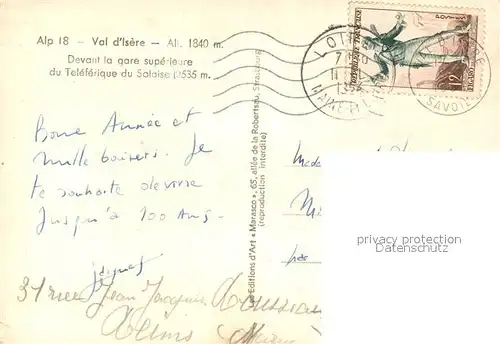 Alp 18 – Val d'Isère – Alt. 1840 m.
Devant la gare supérieure
du Teléférique du Solaise (2535 m.
Bonne Année et
mille baisers. Je
te souhaite de vivre
Jusqu'à 100 Ans -
Jacques
31 rue Jean Jacques Rousseau
Reims Marne
Editions d'Art « Marasco », 65, allée de la Robertsau, Strasbourg
(reproduction interdite)
POSTES
12F
SAVOIE
privacy protection
Datenschutz